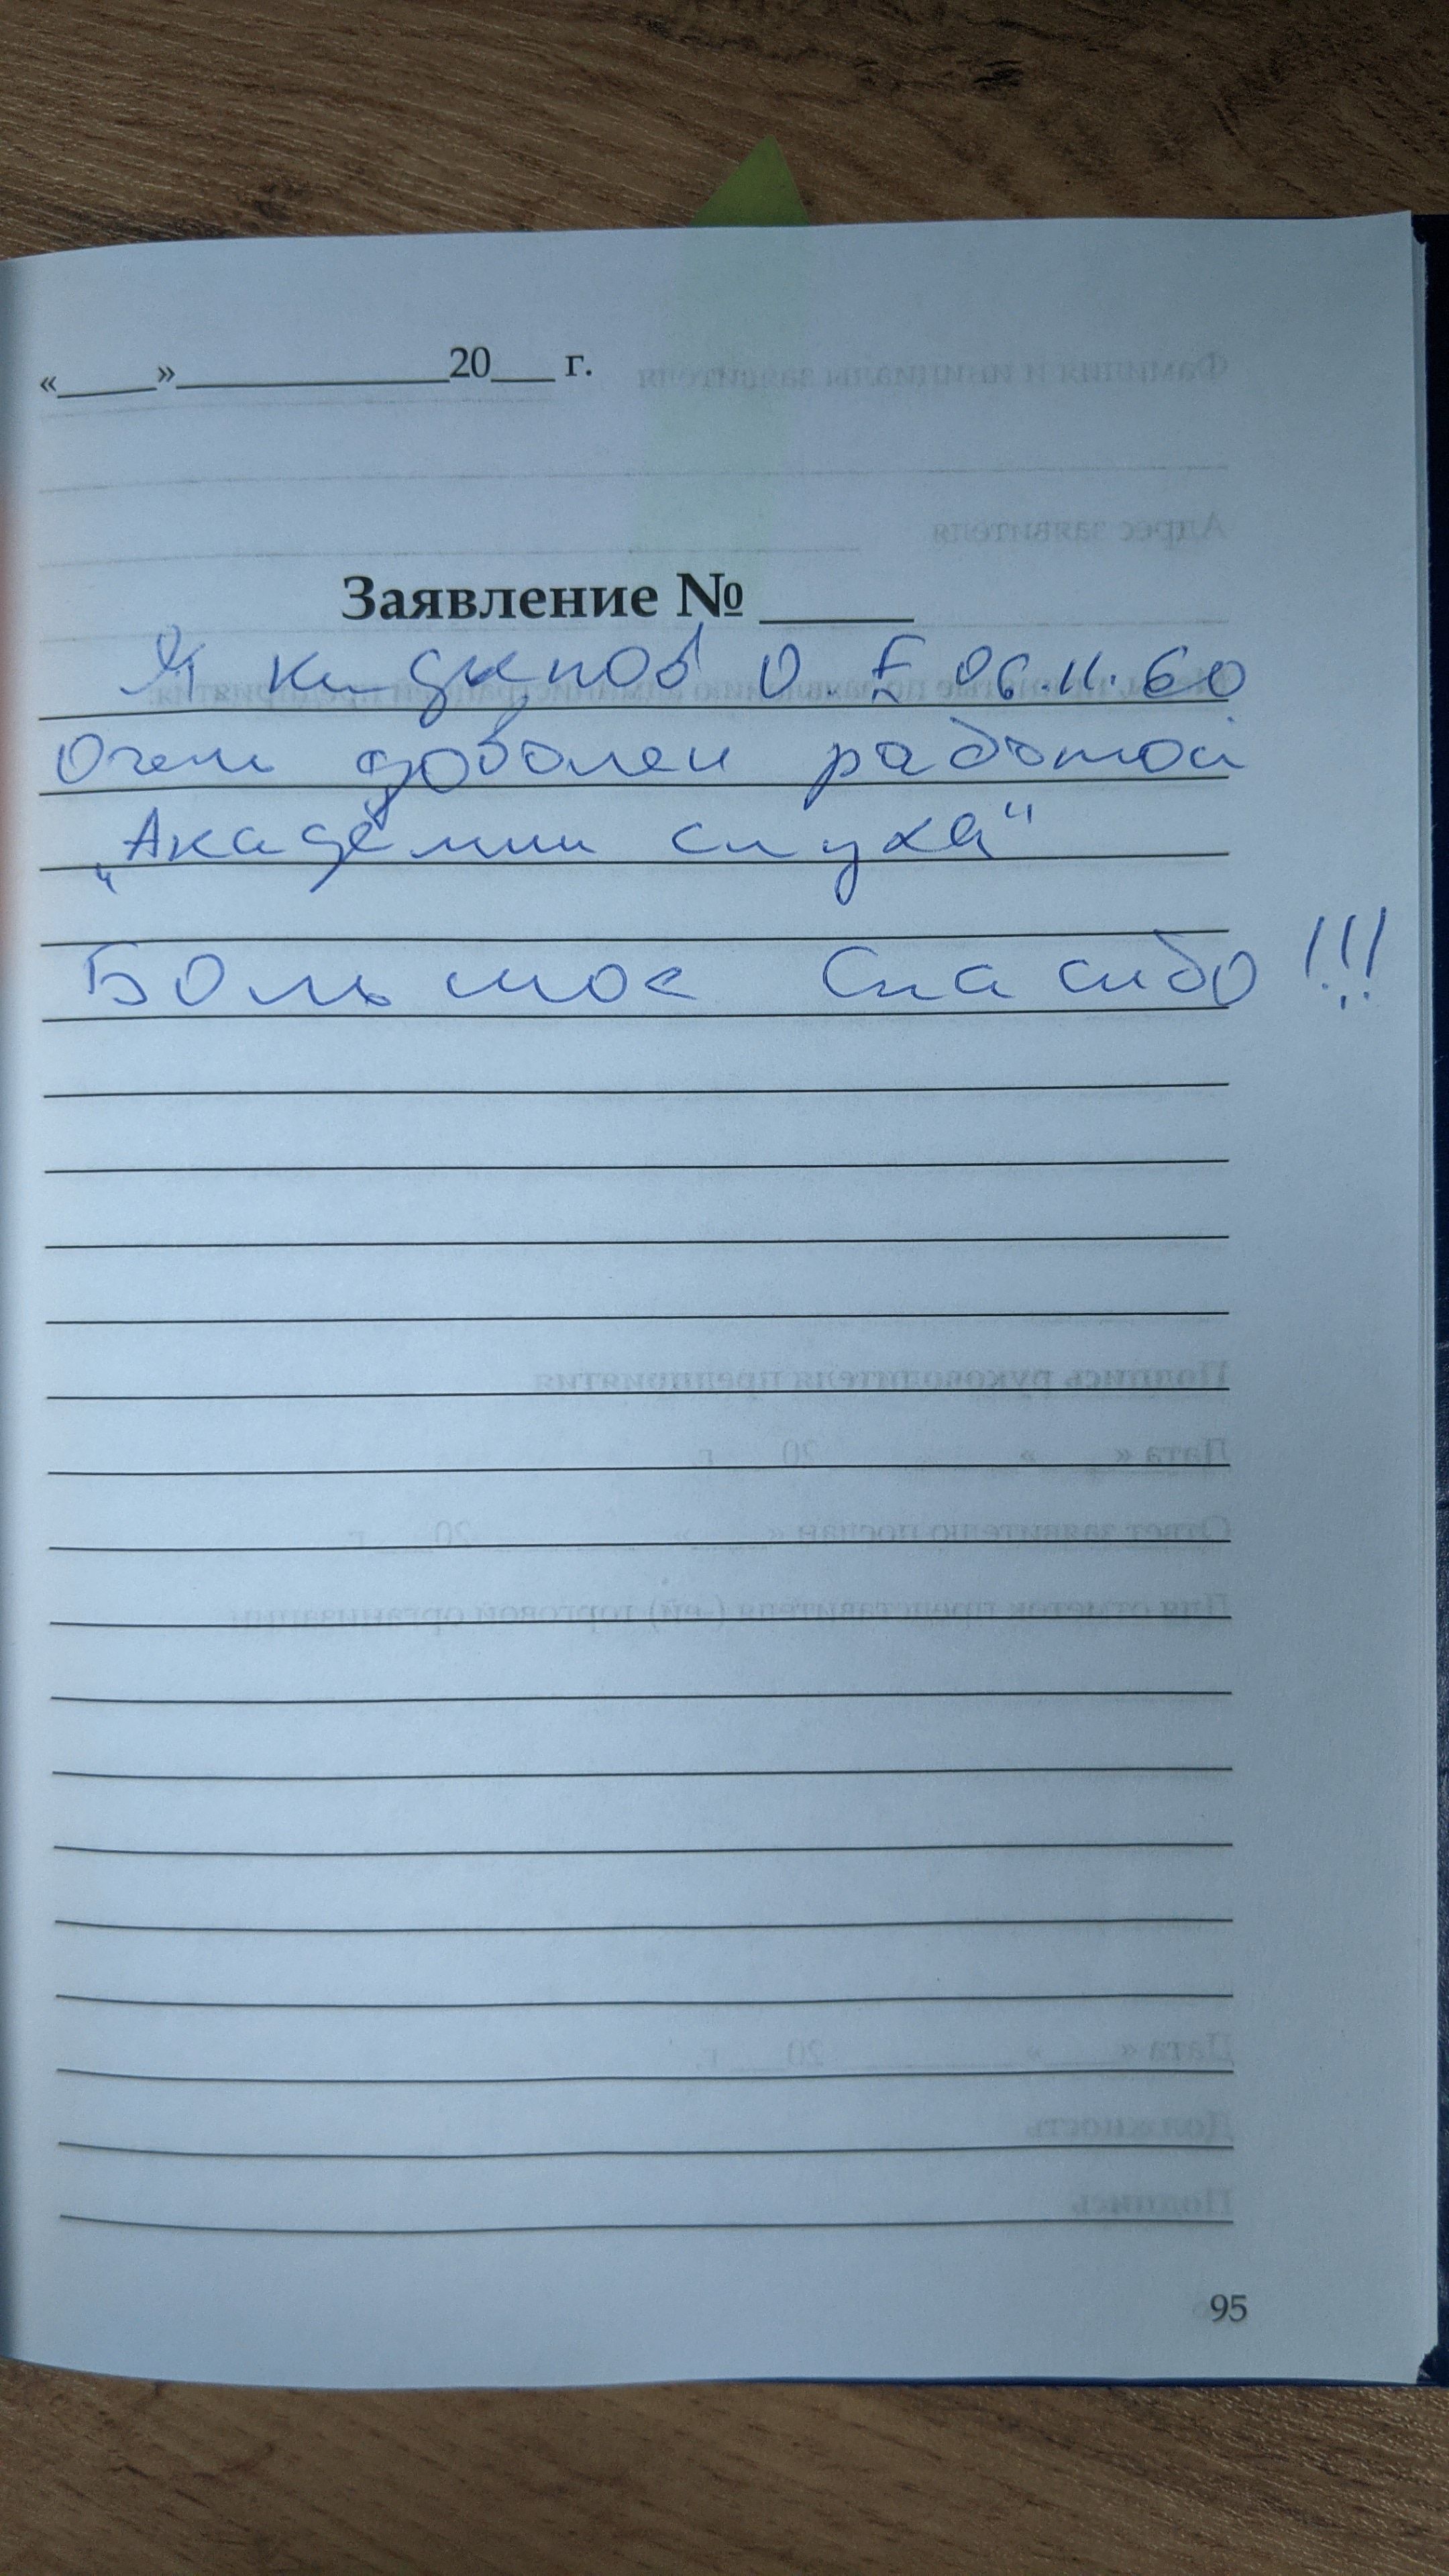 «____»____________20___ г.
Заявление № ____
Я О. Г 06.11.60
Очень доволен работой
„Академии слуха“
Большое Спасибо!!!
95